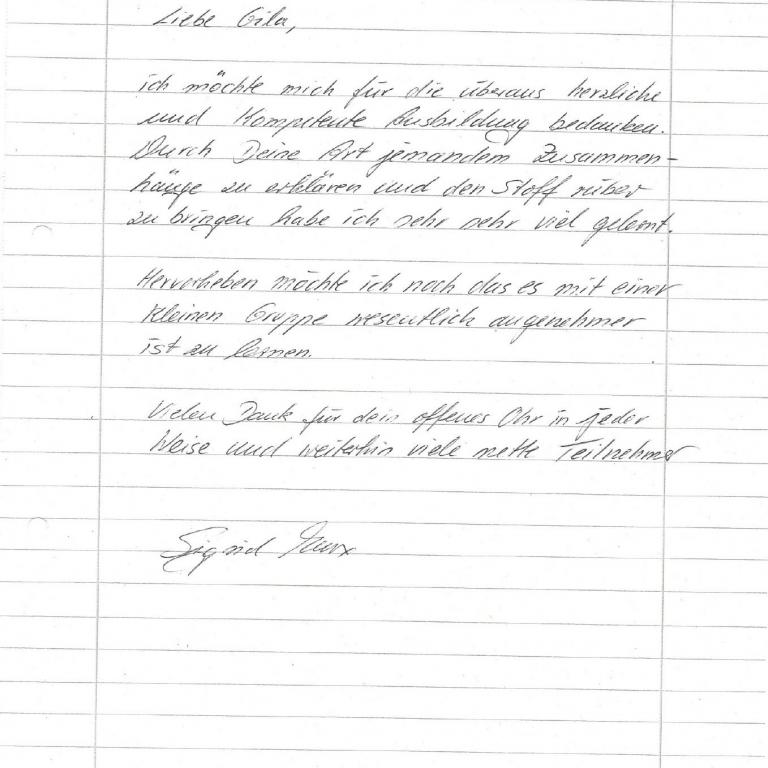 Liebe Gila,
ich möchte mich für die überaus herzliche
und Kompetente Ausbildung bedanken.
Durch Deine Art jemandem Zusammen-
hänge zu erklären und den Stoff rüber
zu bringen habe ich sehr sehr viel gelernt.
Hervorheben möchte ich noch das es mit einer
kleinen Gruppe wesentlich angenehmer
ist zu lernen.
Vielen Dank für dein offenes Ohr in jeder
Weise und weiterhin viele nette Teilnehmer
Sigrid